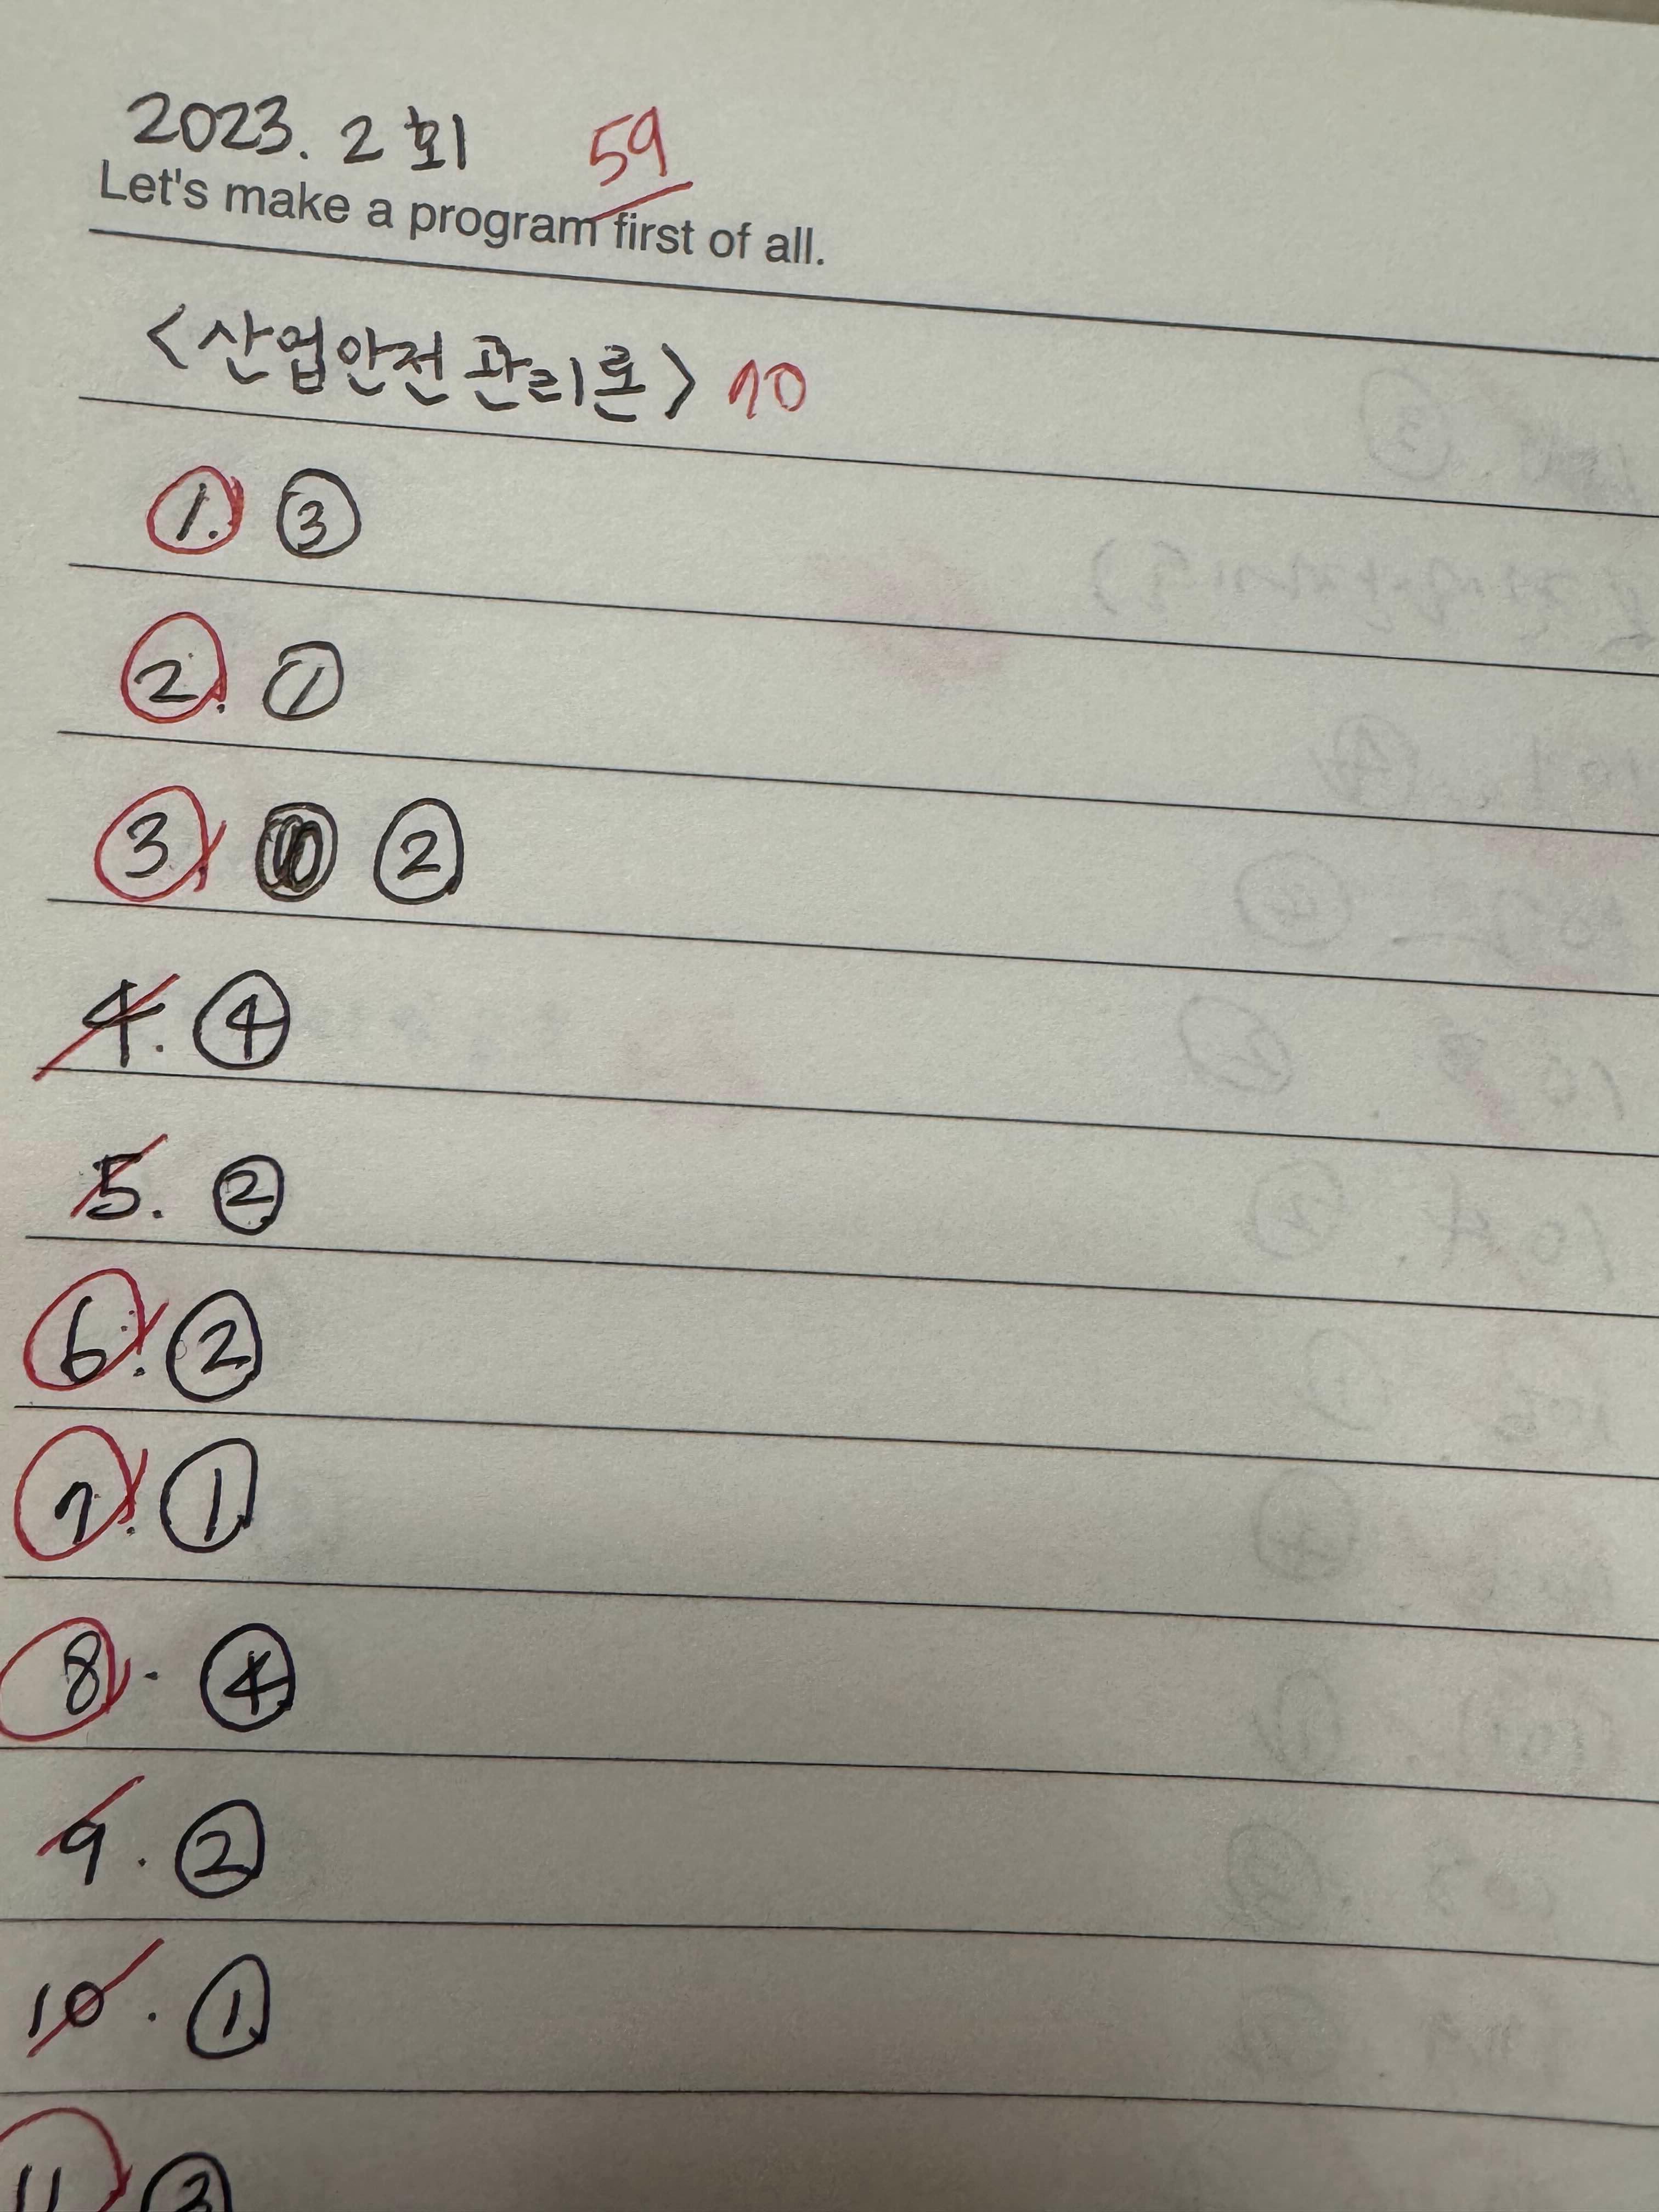 2023. 2회 59
Let's make a program first of all.
<산업안전관리론> 70
1. ③
2. ①
3. ②
4. ④
5. ②
6. ②
7. ①
8. ④
9. ②
10. ①
11